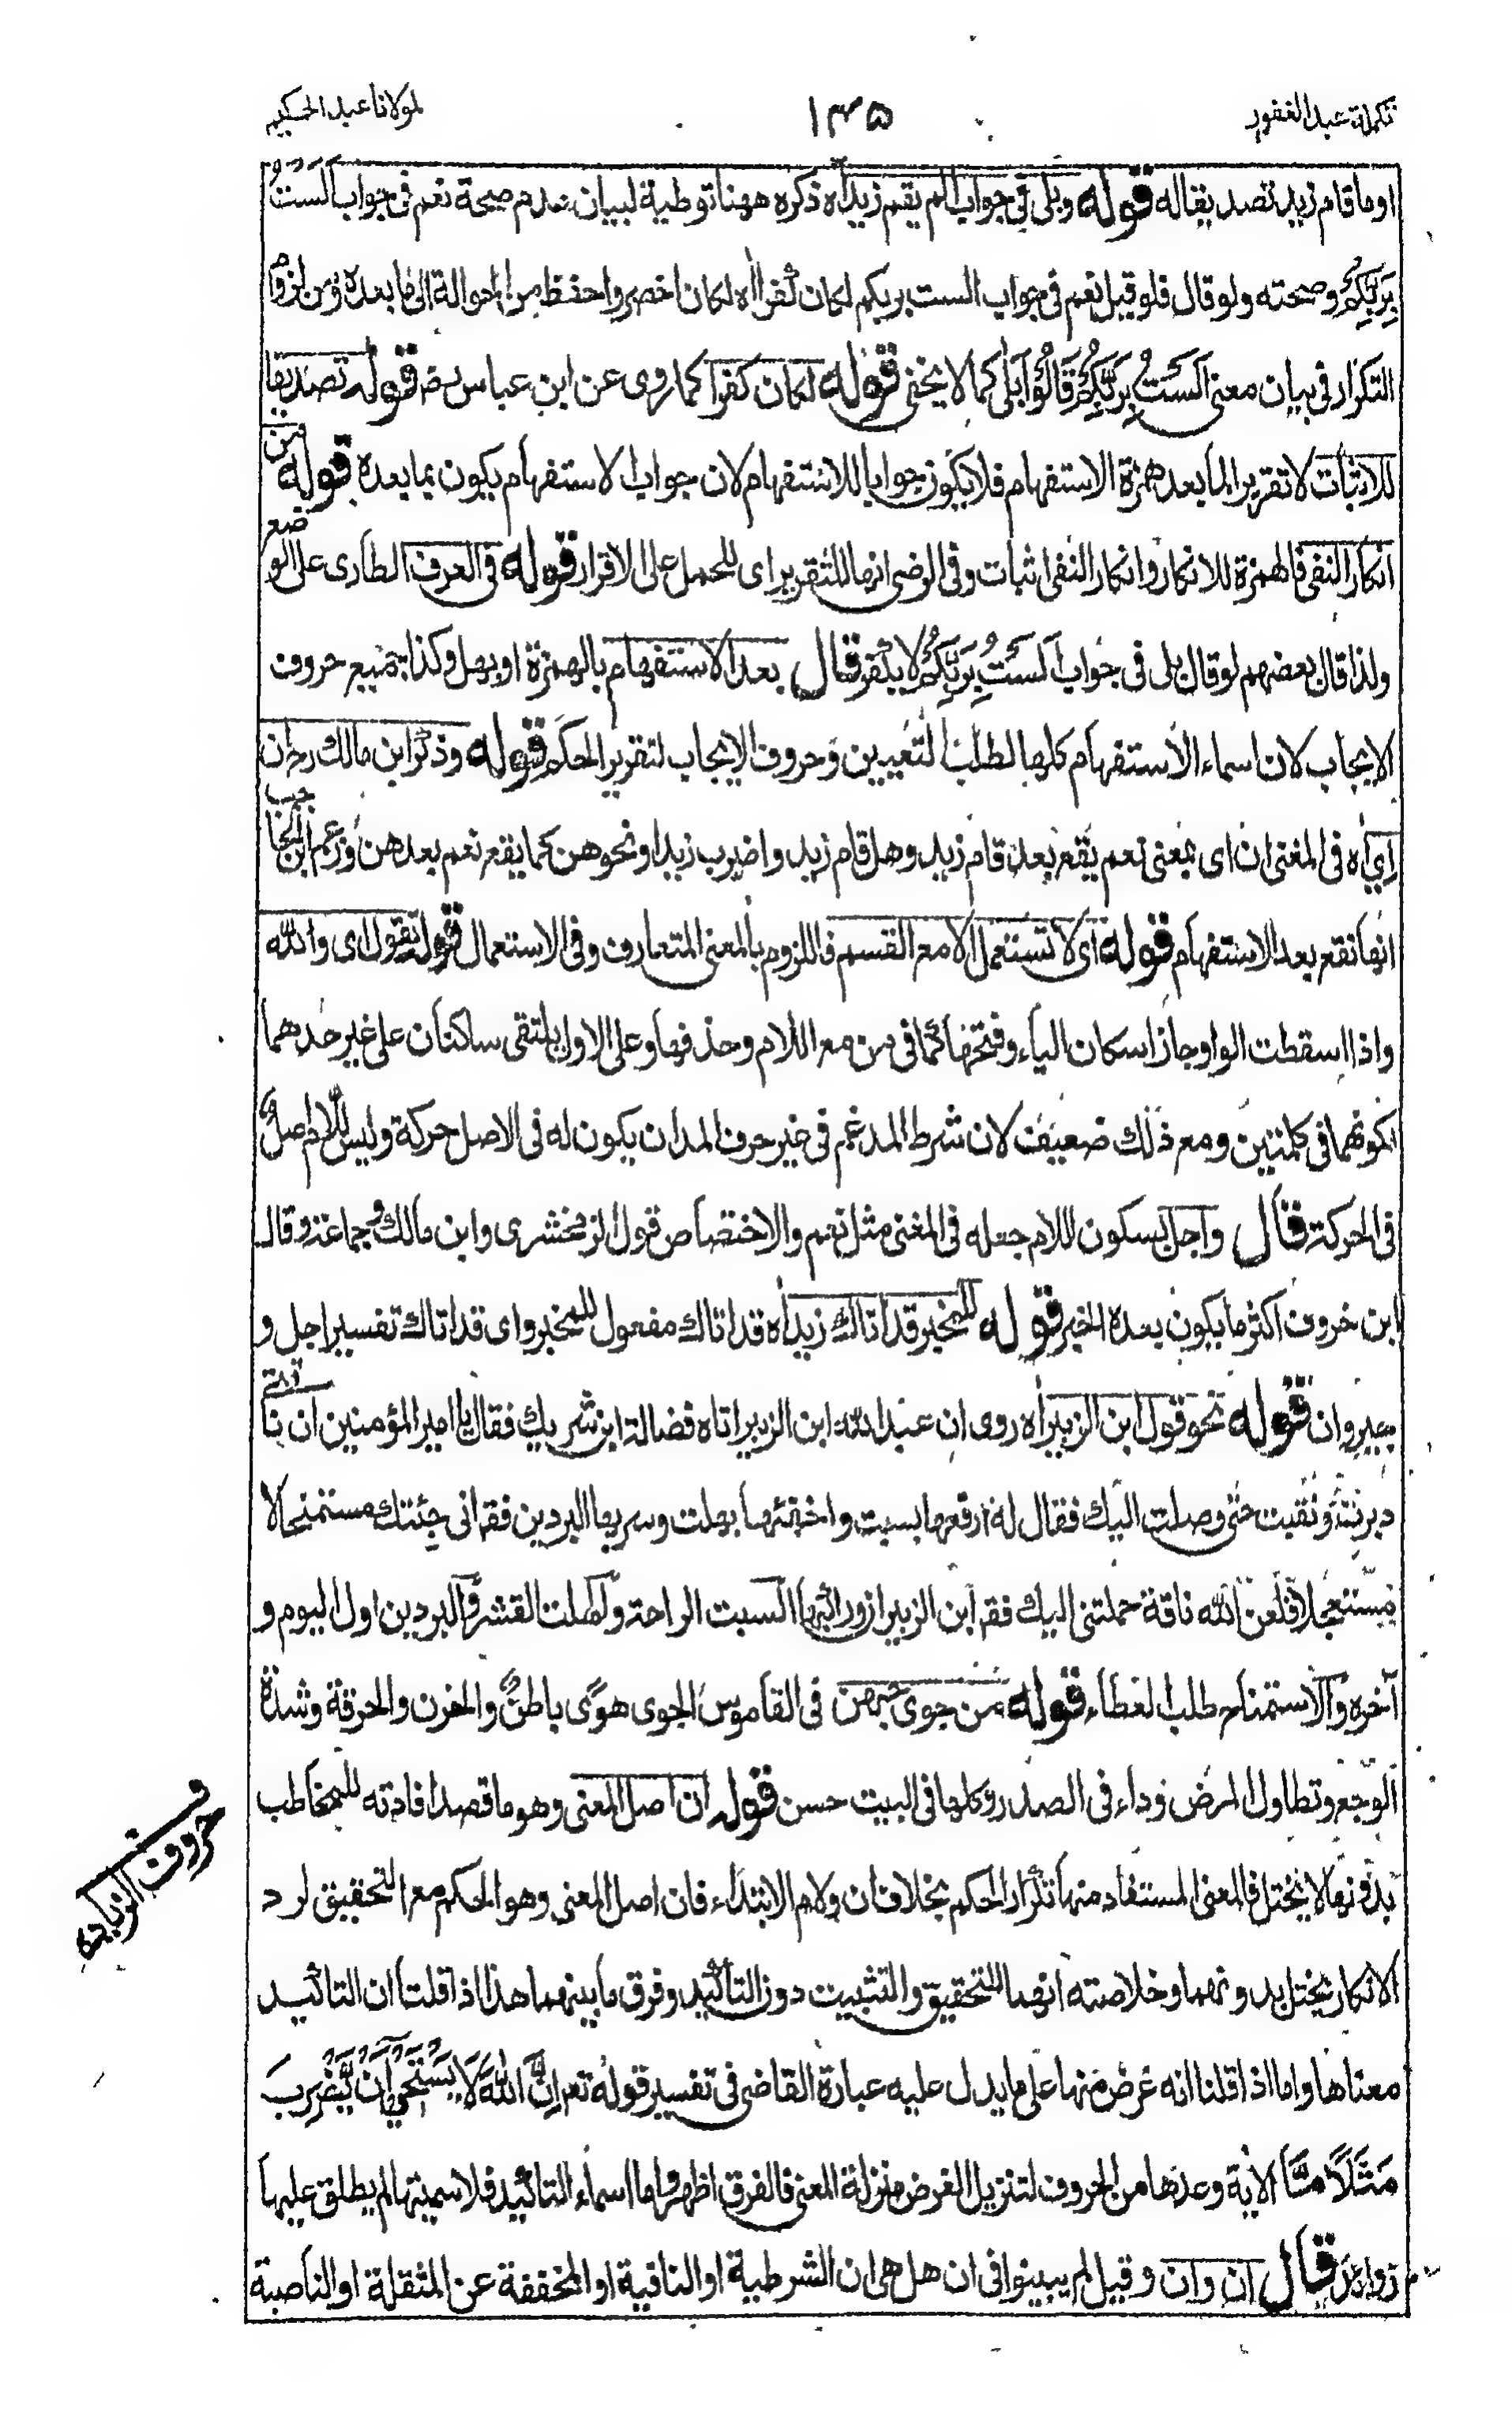 تكملة عبد الغفور
١٣٥
لمولانا عبد الحكيم
او ما قام زيد تصديقا له قوله وبلى في جواب الم يقم زيد اه ذكره ههنا توطية لبيان عدم صحة نعم في جواب اَلَسْتُ
بِرَبِّكُمْ وصحته ولو قال فلو قيل نعم في جواب الست بربكم لكان كفرا اه لكان اخصر واحفظ من الحوالة الى ما بعده ومن لزوم
التكرار في بيان معنى اَلَسْتُ بِرَبِّكُمْ قَالُوْا بَلٰى كما لا يخفى قوله لكان كفرا كما روى عن ابن عباس رضـ قوله تصديقا
للاثبات لا تقرير لما بعد همزة الاستفهام فلا يكون جوابا للاستفهام لان جواب الاستفهام يكون بما بعده قوله من
انكار النفى فالهمزة للانكار وانكار النفى اثبات وفي الرضى انها للتقرير اى للحمل على الاقرار قوله في العرف الطارى على الوضع
ولذا قال بعضهم لو قال بلى في جواب اَلَسْتُ بِرَبِّكُمْ لا يكفر قال بعد الاستفهام بالهمزة او بهل وكذا جميع حروف
الايجاب لان اسماء الاستفهام كلها لطلب التعيين وحروف الايجاب لتقرير الحكم قوله وذكر ابن مالك رح ان
اِي اه في المغنى ان اى بمعنى نعم يقع بعد قام زيد وهل قام زيد واضرب زيدا ونحوهن كما يقع نعم بعدهن وزعم ابن الحاجب
انها تقع بعد الاستفهام قوله اى لا تستعمل الا مع القسم فاللزوم بالمعنى المتعارف وفي الاستعمال قوله تقول اى والله
واذا اسقطت الواو جاز اسكان الياء وفتحها كما في من مع اللام وحذفها وعلى الاول يلتقى ساكنان على غير حدهما
لكونهما في كلمتين ومع ذلك ضعيف لان شرط المدغم في غير حرف المد ان يكون له في الاصل حركة وليس للام اصل
في الحركة قال واجل بسكون اللام جعله في المغنى مثل نعم والاختصاص قول الزمخشرى وابن مالك وجماعة وقال
ابن خروف اكثر ما يكون بعده الخبر قوله للمخبر قد اتاك زيد اه قد اتاك مفعول للمخبر واى قد اتاك تفسير اجل و
جير وان قوله نحو قول ابن الزبير اه روى ان عبد الله ابن الزبير اتاه فضالة ابن شريك فقال يا امير المؤمنين ان ناقتى
دبرت ونقبت حتى وصلت اليك فقال له ارقعها بسبت واخصفها بهلب وسر بها البردين فقـ انى جئتك مستمنحا لا
مستعجلا فلعن الله ناقة حملتنى اليك فقـ ابن الزبير ان وراكبها السبت الراحة والبردين اول اليوم و
آخره والاستمناح طلب العطاء قوله من جوى في القاموس الجوى هوى باطن والحزن والحرقة وشدة
الوجع وتطاول المرض وداء في الصدر وكلها في البيت حسن قوله ان اصل المعنى وهو ما قصد افادته للمخاطب
بدونها لا يختل فالمعنى المستفاد منها تكرار الحكم بخلاف ان ولام الابتداء فان اصل المعنى وهو الحكم مع التحقيق لرد
الانكار يختل بدونهما وخلاصته انهما للتحقيق والتثبيت دون التأكيد وفرق ما بينهما هذا اذا قلنا ان التاكيد
معناها واما اذا قلنا انه غرض منها على ما يدل عليه عبارة القاضى في تفسير قوله تعـ اِنَّ اللّٰهَ لَا يَسْتَحْيٖ اَنْ يَّضْرِبَ
مَثَلًا مَّا الاية وعدها من الحروف لتنزيل الغرض منزلة المعنى فالفرق اظهر واما اسماء التاكيد فلاسميتها لم يطلق عليها
زوائد قال ان وان وقيل لم يبينوا في ان هل هى ان الشرطية او النافية او المخففة عن المثقلة او الناصبة
حروف الزيادة